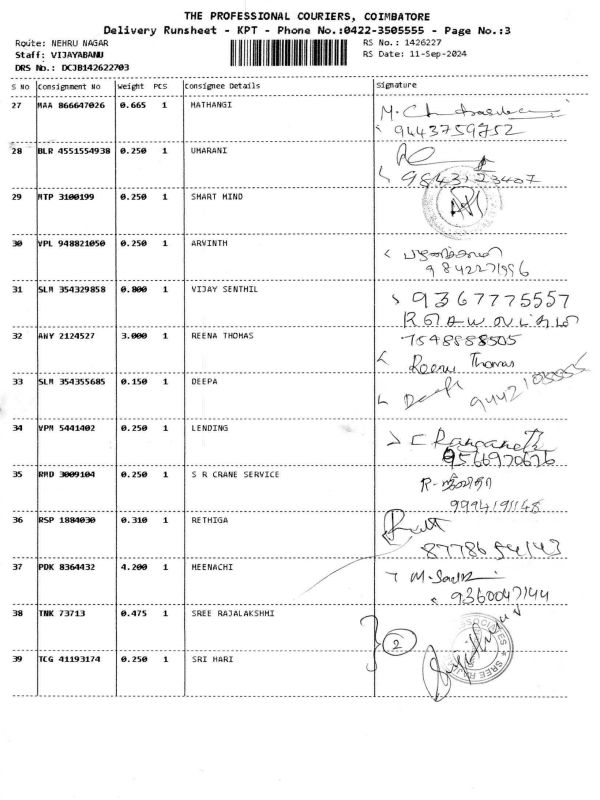 THE PROFESSIONAL COURIERS, COIMBATORE
Delivery Runsheet - KPT - Phone No.:0422-3505555 - Page No.:3
Route: NEHRU NAGAR RS No.: 1426227
Staff: VIJAYABANU RS Date: 11-Sep-2024
DRS No.: DCJB142622703
S No Consignment No Weight PCS Consignee Details Signature
27 MAA 866647026 0.665 1 MATHANGI
9443759752
28 BLR 4551554938 0.250 1 UMARANI
9843123407
29 MTP 3100199 0.250 1 SMART MIND
30 VPL 948821050 0.250 1 ARVINTH
9842271996
31 SLM 354329858 0.800 1 VIJAY SENTHIL 9367775557
32 ANY 2124527 3.000 1 REENA THOMAS 7548888505
Reenu Thomas
33 SLM 354355685 0.150 1 DEEPA
34 VPM 5441402 0.250 1 LENDING
9566970676
35 RMD 3009104 0.250 1 S R CRANE SERVICE
9994191148
36 RSP 1884030 0.310 1 RETHIGA
37 PDK 8364432 4.200 1 MEENACHI
9360047144
38 TNK 73713 0.475 1 SREE RAJALAKSHMI
2
39 TCG 41193174 0.250 1 SRI HARI